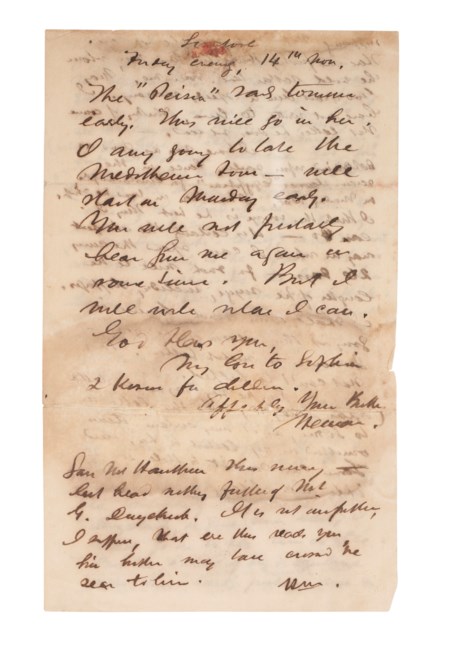 Friday evening, 14th Nov.
The "Persia" sails tomorrow
early. This will go in her.
I am going to take the
Mediterranean tour — will
start on Monday early.
You will not probably
hear from me again in
some time. But I
will write when I can.
God bless you,
My love to Sophia
& kisses for children.
Your Brother
Herman.
Saw Mr Hawthorne this morning —
but heard nothing further of Mr
G. Duyckinck. It is not impossible,
I suppose, that ere this reads you
his brother may have crossed the
sea to him.